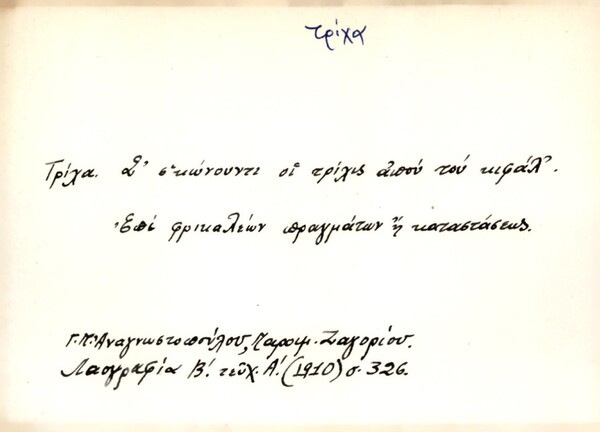 τρίχα
Τρίχα. Σ' σ'κώνουντι οἱ τρίχις ἀπού τού κιφάλ'.
Ἐπί φρικαλέων πραγμάτων ἤ καταστάσεως.
Γ.Π. Ἀναγνωστοπούλου, Παροιμ. Ζαγορίου.
Λαογραφία Β΄. τεῦχ. Α΄. (1910) σ. 326.